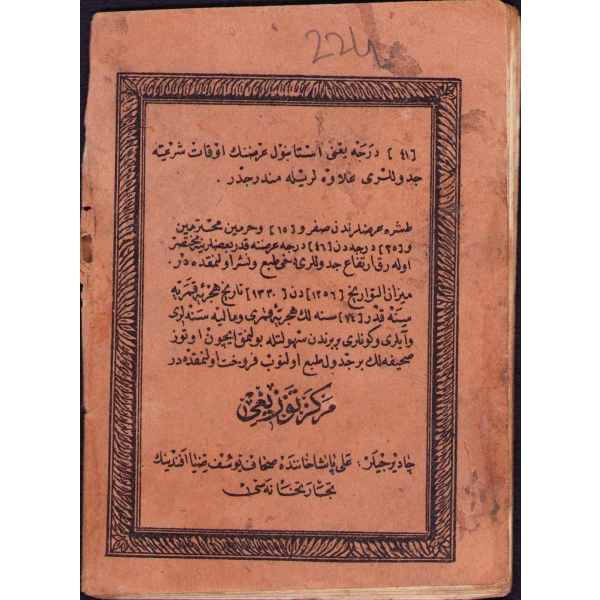 224
[٤١] درجه یعنی استانبول عرضنك اوقات شرعیه
جدوللری علاوه لریله مندرجدر .
طشره عرضلرندن صفر و [١٥] و حرمین محترمین
و [٣٥] درجه دن [٤٦] درجه عرضنه قدر بعضلرینه مختصر
اوله رق ارتفاع جدوللری دخی طبع و نشر اولنمقده در.
میزان التواریخ [١٢٥٦] دن [١٣٣٠] تاریخ هجریهٔ قمریه
سینه قدر [٧٤] سنه لك هجریهٔ قمری و مالیه سنه لری
و آیلری و کونلری بربرندن سهولتله بولمق ایچون اوتوز
صحیفه لك بر جدول طبع اولنوب فروخت اولنمقده در
مرکز توزیعی
چادیرجیلر : علی پاشا خاننده صحاف یوسف ضیا افندینك
تجارتخانه سی